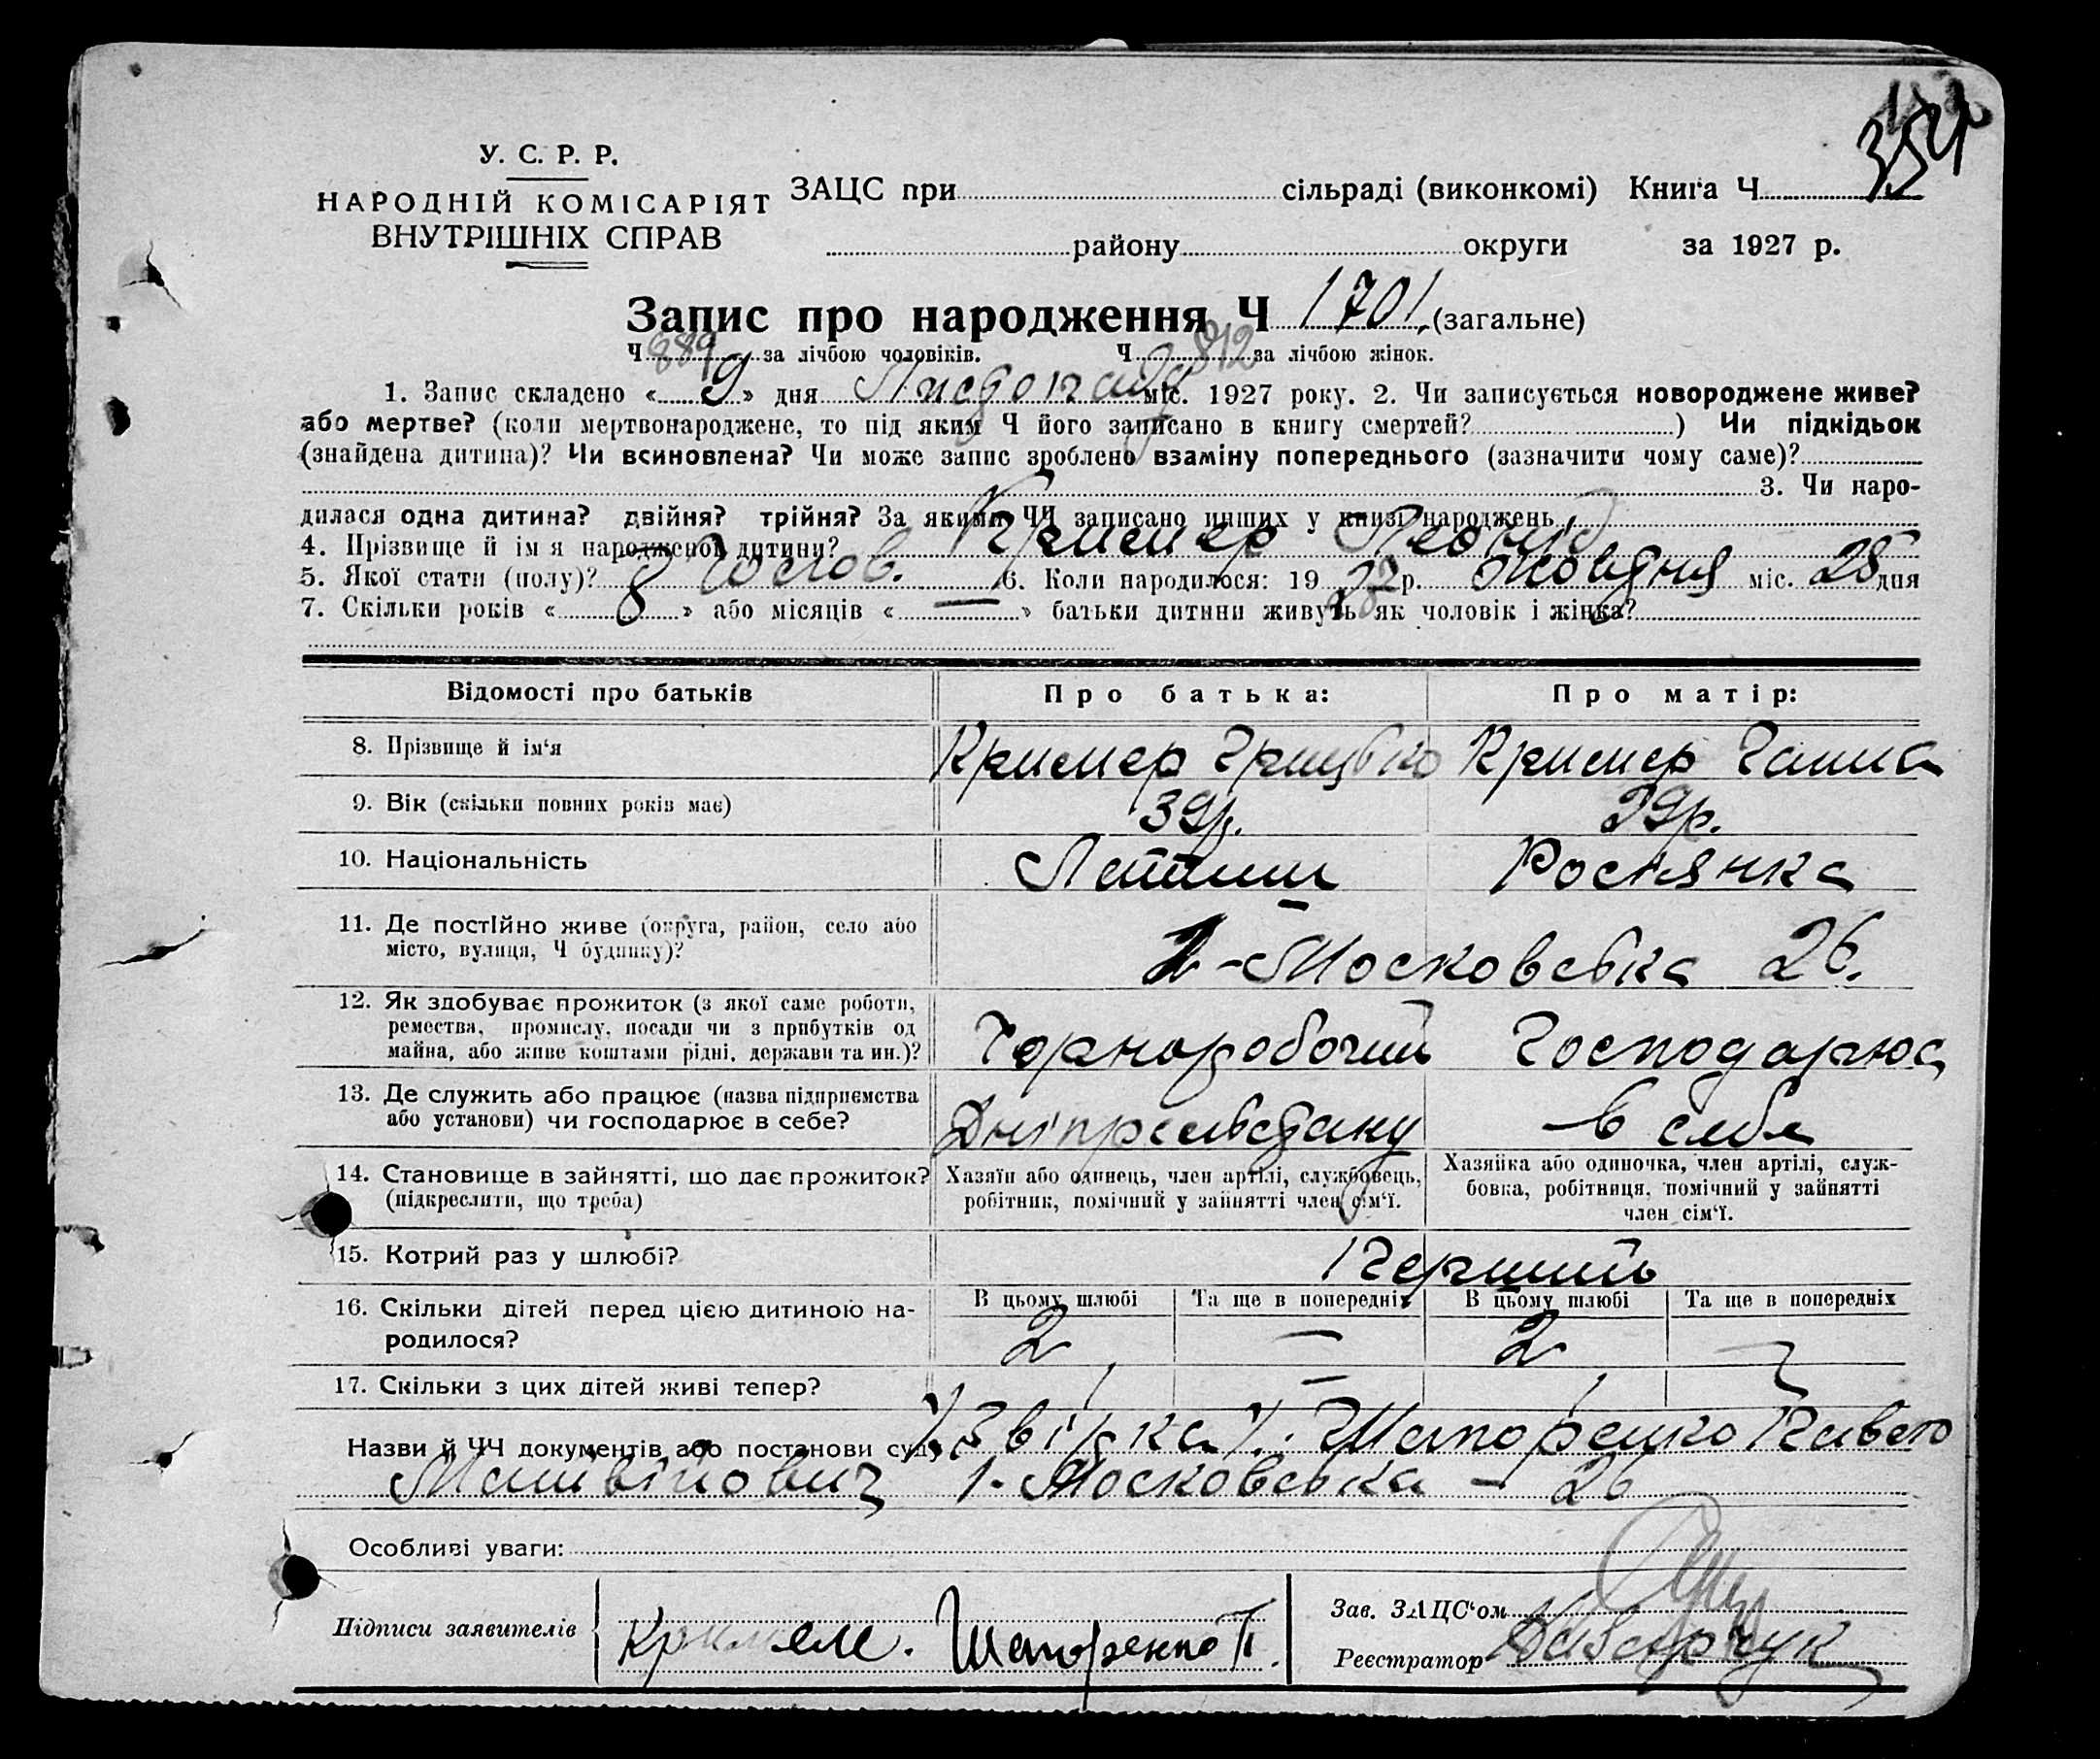 354
У. С. Р. Р.
НАРОДНІЙ КОМІСАРІЯТ
ВНУТРІШНІХ СПРАВ
ЗАЦС при сільраді (виконкомі) Книга Ч
району округи за 1927 р.
Запис про народження Ч 1701 (загальне)
Ч 889 за лічбою чоловіків. Ч 812 за лічбою жінок.
1. Запис складено « 9 » дня Листопаду міс. 1927 року. 2. Чи записується новороджене живе?
або мертве? (коли мертвонароджене, то під яким Ч його записано в книгу смертей? ) Чи підкідьок
(знайдена дитина)? Чи всиновлена? Чи може запис зроблено взаміну попереднього (зазначити чому саме)?
3. Чи наро-
дилася одна дитина? двійня? трійня? За якими ЧЧ записано инших у книзі народжень
4. Прізвище й ім я народженої дитини? Кример Леонід
5. Якої стати (полу)? Чолов. 6. Коли народилося: 19 27 р. жовтня міс. 28 дня
7. Скільки років « 8 » або місяців « — » батьки дитини живуть як чоловік і жінка?
Відомості про батьків Про батька: Про матір:
8. Прізвище й ім'я Кример Грицько Кример Ганна
9. Вік (скільки повних років має) 39р. 39р.
10. Національність Латиш Росіянка
11. Де постійно живе (округа, район, село або
місто, вулиця, Ч будинку)? 1-Московська 26.
12. Як здобуває прожиток (з якої саме роботи,
ремества, промислу, посади чи з прибутків од
майна, або живе коштами рідні, держави та ин.)? Чорноробочий Господарює
13. Де служить або працює (назва підприємства
або установи) чи господарює в себе? в себе
14. Становище в зайнятті, що дає прожиток?
(підкреслити, що треба)
Хазяїн або одинець, член артілі, службовець,
робітник, помічний у зайнятті член сім'ї.
Хазяйка або одиночка, член артілі, служ-
бовка, робітниця, помічний у зайнятті
член сім'ї.
15. Котрий раз у шлюбі? Перший
16. Скільки дітей перед цією дитиною на-
родилося?
В цьому шлюбі Та ще в попередніх В цьому шлюбі Та ще в попередніх
2 — 2 —
17. Скільки з цих дітей живі тепер? 1 — 1
Назви й ЧЧ документів або постанови суду Шапоренко Павло
Матвійович 1-Московська - 26
Особливі уваги:
Підписи заявителів Шапоренко П.
Зав. ЗАЦС'ом
Реєстратор